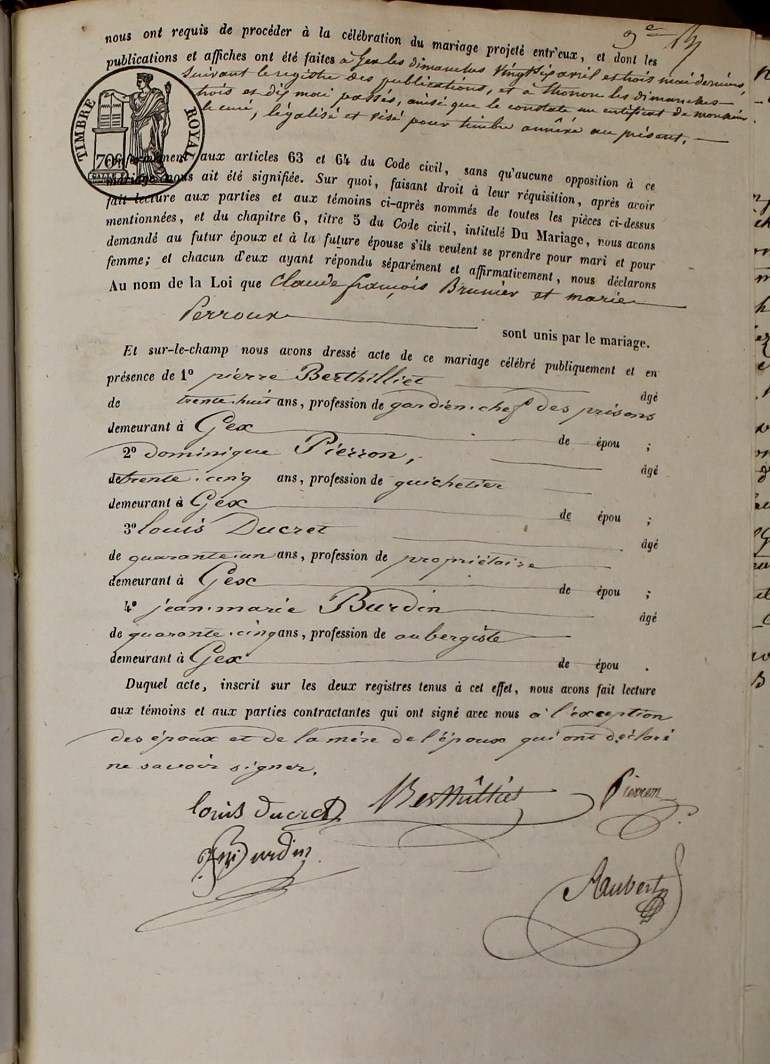 nous ont requis de procéder à la célébration du mariage projeté entr'eux, et dont les
publications et affiches ont été faites à Gex les dimanches vingt six avril et trois mai derniers,
suivant le registre des publications, et à Thonon les dimanches
trois et dix mai passés, ainsi que le constate un certificat de monsieur
le curé, légalisé et visé pour timbre annéxé au présent.
TIMBRE ROYAL
70c
aux articles 63 et 64 du Code civil, sans qu'aucune opposition à ce
mariage nous ait été signifiée. Sur quoi, faisant droit à leur réquisition, après avoir
fait lecture aux parties et aux témoins ci-après nommés de toutes les pièces ci-dessus
mentionnées, et du chapitre 6, titre 5 du Code civil, intitulé Du Mariage, nous avons
demandé au futur époux et à la future épouse s'ils veulent se prendre pour mari et pour
femme; et chacun d'eux ayant répondu séparément et affirmativement, nous déclarons
Au nom de la Loi que Claude françois Brunier et marie
Perroux sont unis par le mariage.
Et sur-le-champ nous avons dressé acte de ce mariage célébré publiquement et en
présence de 1º pierre Berthilliet âgé
de trente-huit ans, profession de gardien-chef des prisons
demeurant à Gex de épou ;
2º dominique Pierron, âgé
de trente-cinq ans, profession de guichetier
demeurant à Gex de épou ;
3º louis Ducret âgé
de quarante-un ans, profession de propriétaire
demeurant à Gex de épou ;
4º jean-marie Burdin âgé
de quarante-cinq ans, profession de aubergiste
demeurant à Gex de épou .
Duquel acte, inscrit sur les deux registres tenus à cet effet, nous avons fait lecture
aux témoins et aux parties contractantes qui ont signé avec nous à l'exception
des époux et de la mère de l'époux qui ont déclaré
ne savoir signer.
louis ducret Berthilliet Pierron
Burdin
Aubert